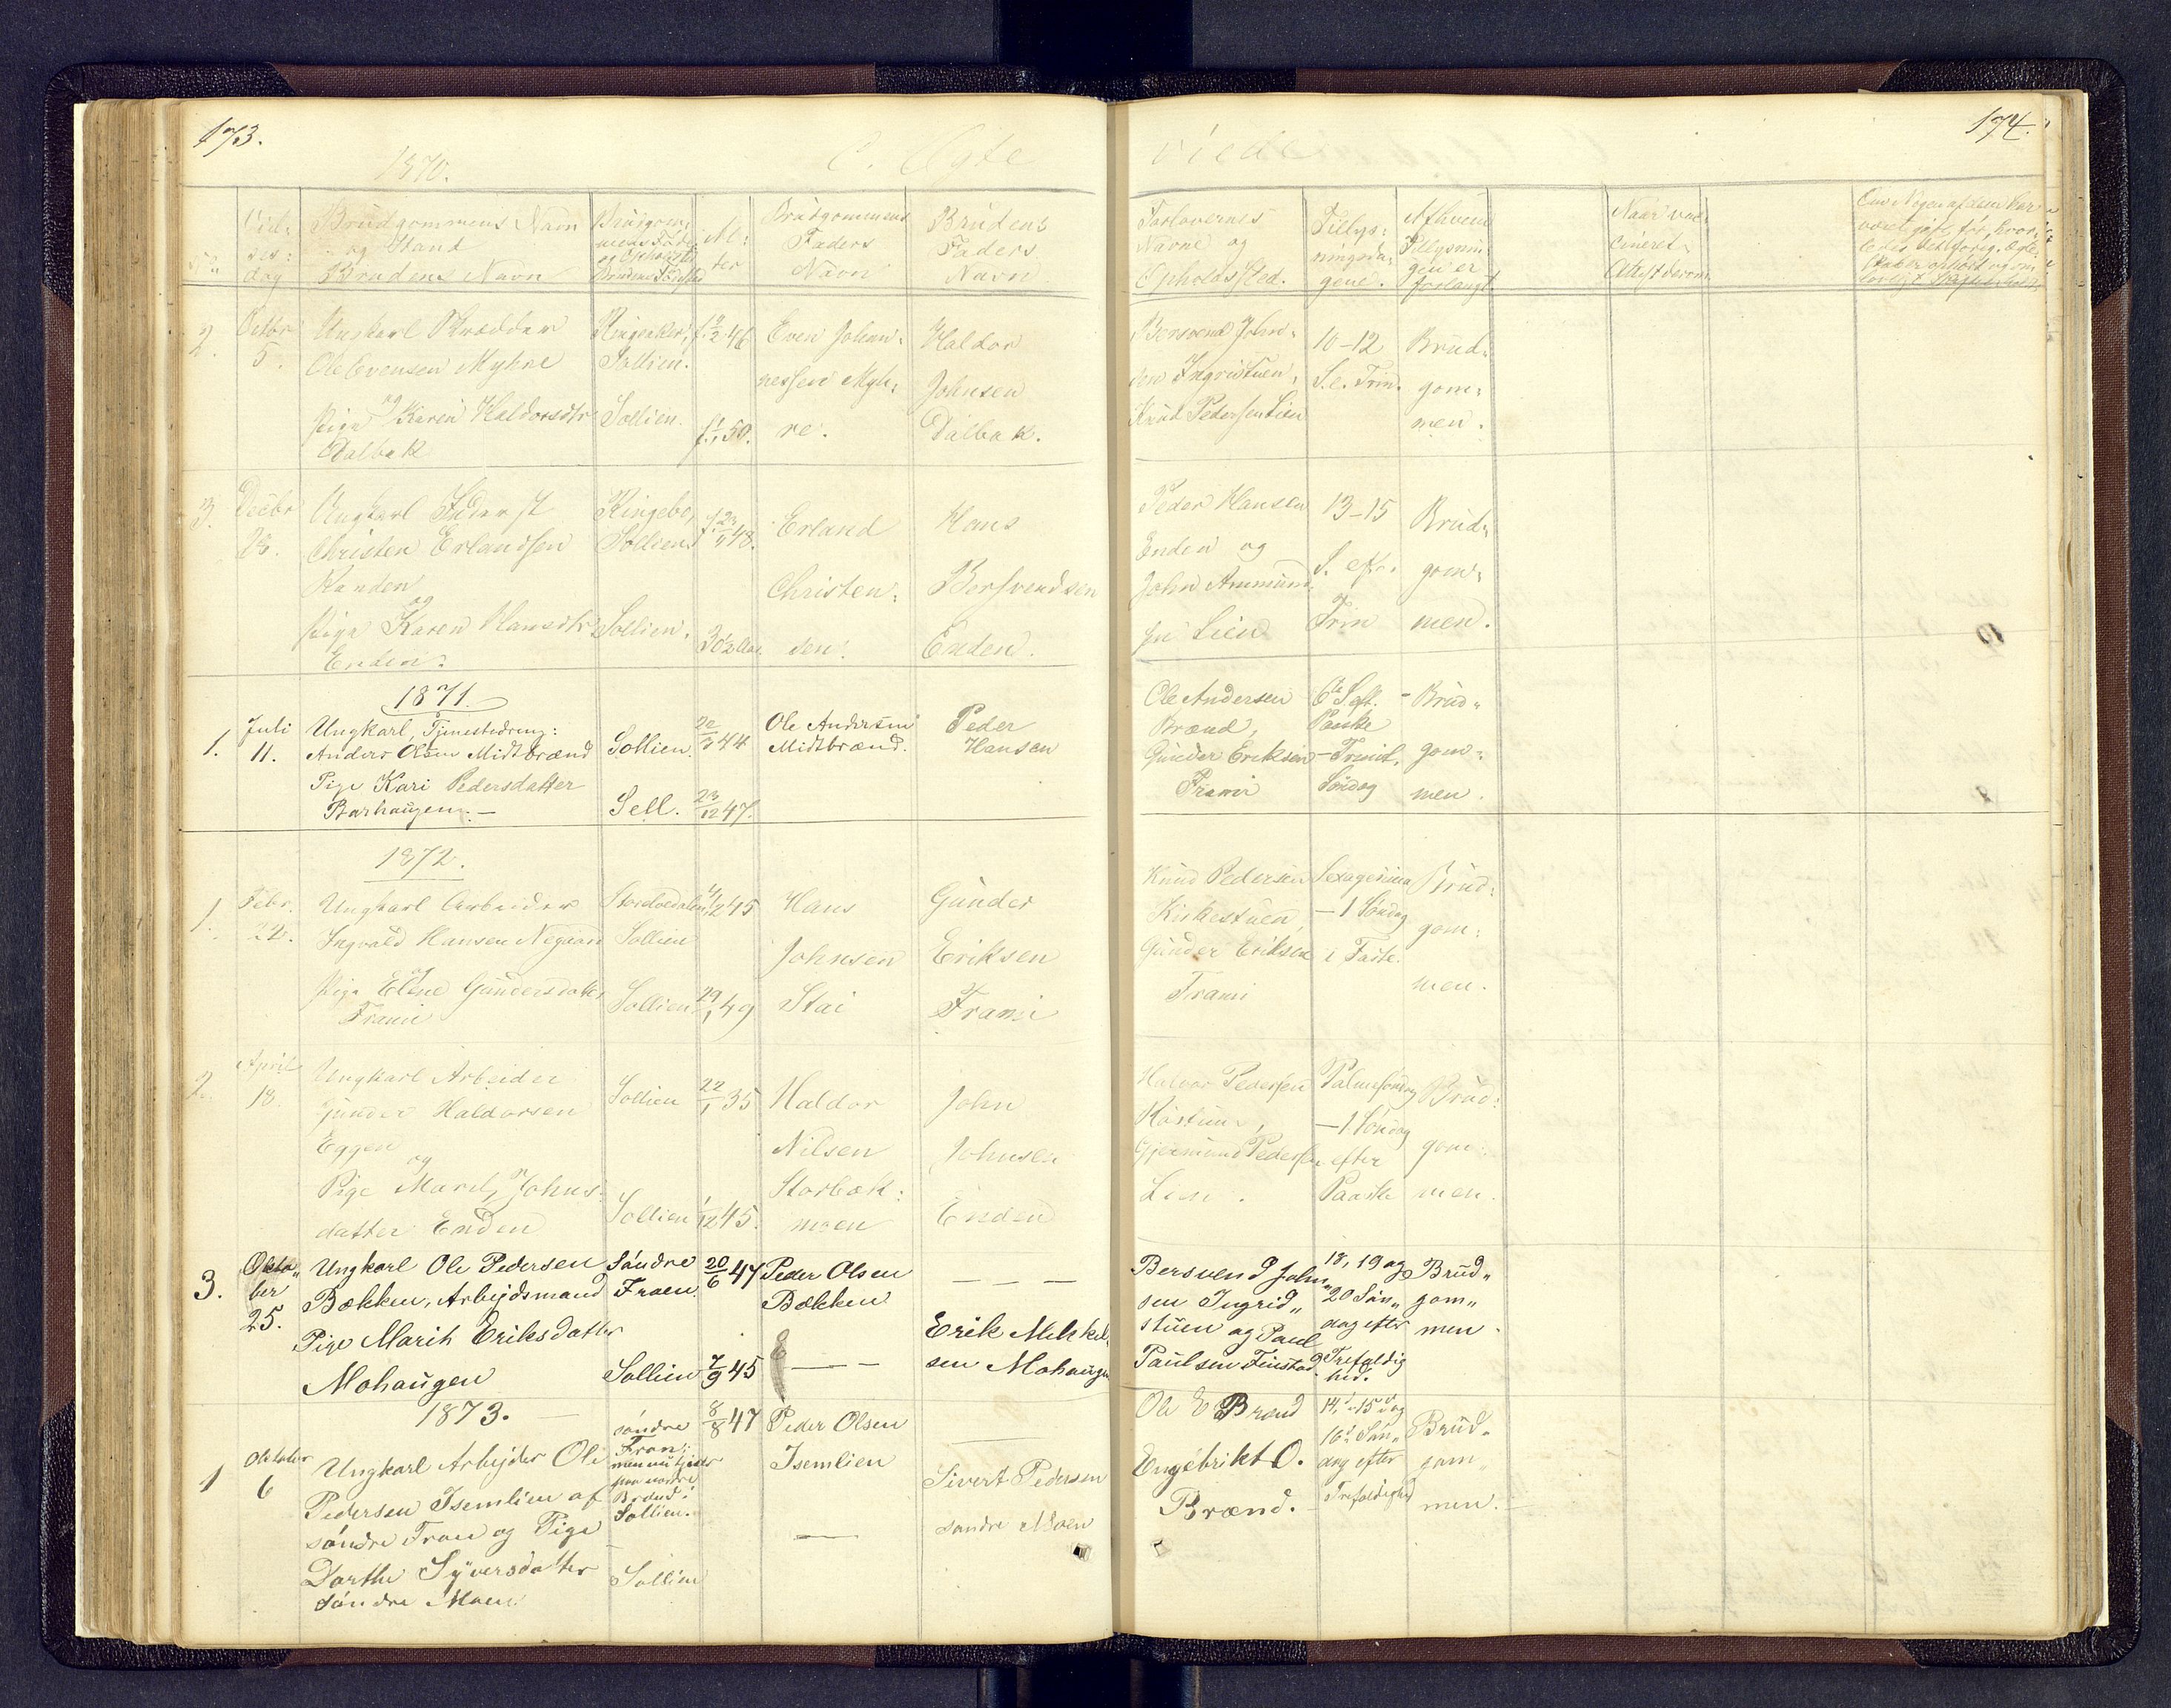 173.
174.
1870.
C. Ægte
viede
Viel-
ses-
dag
Brudgommens Navn
og Stand
Brudens Navn
Brudgom-
mens Føde
og Opholdssted
Brudens Fødested
Al-
der
Brudgommens
Faders
Navn
Brudens
Faders
Navn
Forlovernes
Navne og
Opholdssted.
Tillys-
ningsda-
gene.
Af hvem
Tillysnin-
gen er
forlangt
Naar vac-
cineret
Attest derom
2.
Octbr
5.
Ungkarl Skrædder
Ole Evensen Myhre
og
Pige Karen Haldorsdtr
Dalbak
Ringaker,
Sollien.
Sollien.
f. 9/2 46
f. 1/1 50.
Even Johan-
nessen Myh-
re.
Haldor
Johnsen
Dalbak.
Bersvend John-
sen Ingridstuen,
Knud Pedersen Lien
10-12
S. e. Trin.
Brud-
gom-
men.
3.
Decbr
28.
Ungkarl
Christen Erlandsen
Randen
og
Pige Karen Hansdtr
Enden.
Ringebo,
Sollien.
Sollien.
f. 23/4 48.
30 2/3 Aar.
Erland
Christen-
sen.
Hans
Bersvendsen
Enden.
Peder Hansen
Enden og
John Ammund-
sen Lien
13-15
S. eft.
Trin
Brud-
gom-
men.
1871.
1.
Juli
11.
Ungkarl, Tjenestedreng:
Anders Olsen Midtbrænd
Pige Kari Pedersdatter
Barhaugen. —
Sollien.
Sell.
20/3 44
23/12 47.
Ole Andersen
Midtbrænd.
Peder
Hansen
Ole Andersen
Brænd,
Gunder Eriksen
Frami
6te S. eft.
Paaske
— Trinit.
Søndag
Brud-
gom-
men.
1872.
1.
Febr.
22.
Ungkarl Arbeider
Ingvald Hansen Negaard
og
Pige Eline Gundersdatter
Frami
Storelvedalen
Sollien
Sollien
4/12 45
29/1 49
Hans
Johnsen
Stai
Gunder
Eriksen
Frami
Knud Pedersen
Kirkestuen,
Gunder Eriksen
Frami
Sexagesima
— 1 Søndag
i Faste.
Brud-
gom-
men.
2.
April
18.
Ungkarl Arbeider
Gunder Haldorsen
Eggen
og
Pige Marit Johns-
datter Enden
Sollien
Sollien
22/1 35
1/12 45.
Haldor
Nilsen
Storbæk-
moen
John
Johnsen
Enden
Halvor Pedersen
Kastum,
Gjermund Pedersen
Lien.
Palmesøndag
— 1. Søndag
efter
Paaske
Brud-
gom-
men.
3.
Okto-
ber
25.
Ungkarl Ole Pedersen
Bækken, Arbejdsmand
Pige Marith Eriksdatter
Mohaugen
Søndre
Froen.
Sollien
20/6 47
7/9 45
Peder Olsen
Bækken
— —
— — —
Erik Mikkel-
sen Mohaugen
Bersvend John-
sen Ingrid-
stuen og Paul
Paulsen Finstad.
18, 19 og
20 Søn-
dag efter
Trefoldig
hed.
Brud-
gom-
men.
1873.
1
Oktober
6
Ungkarl Arbejder Ole
Pedersen Isemlien af
søndre Fron og Pige
Dorthe Syversdatter
Søndre Moen.
søndre
Fron;
men nu tjener
paa nordre
Brænd i
Sollien.
Sollien
8/8 47
Peder Olsen
Isemlien
—
—
Sivert Pedersen
søndre Moen
Ole E Brænd
Engebrikt O.
Brænd.
14, 15 og
16 Søn-
dag efter
Trefoldighed
Brud-
gom-
men.